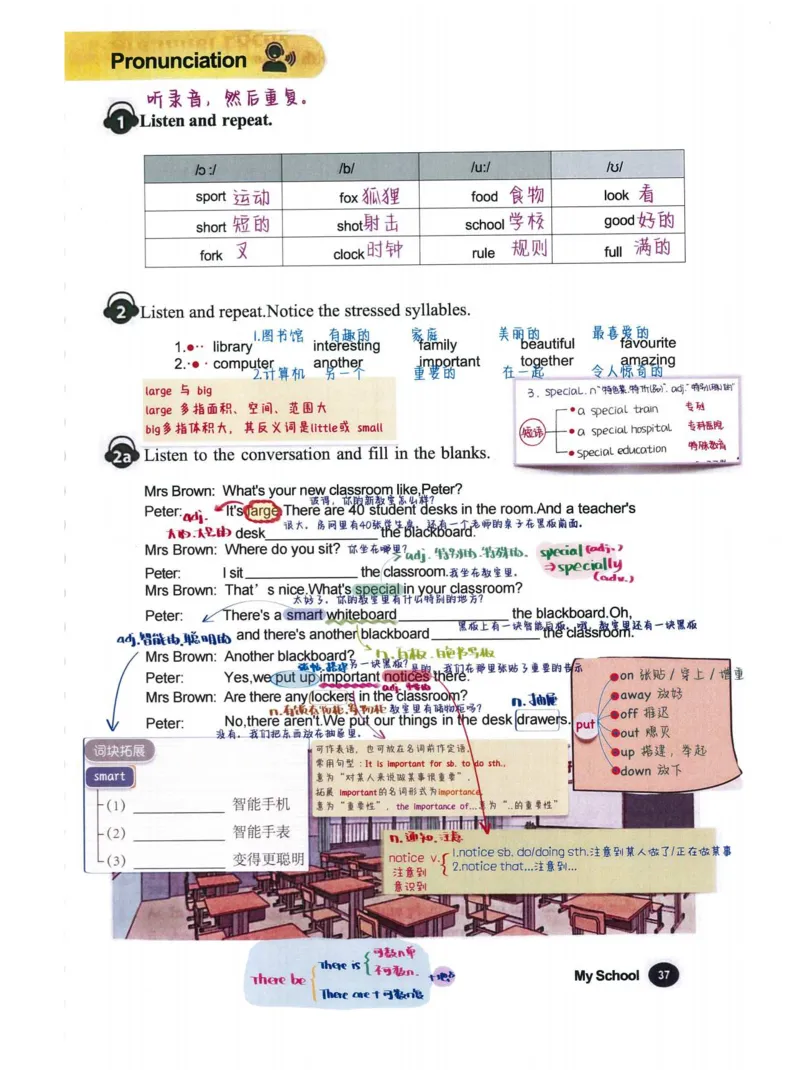 Pronunciation
听录音，然后重复。
1 Listen and repeat.
/ɔ:/ /b/ /u:/ /ʊ/
sport 运动 fox 狐狸 food 食物 look 看
short 短的 shot 射击 school 学校 good 好的
fork 叉 clock 时钟 rule 规则 full 满的
2 Listen and repeat.Notice the stressed syllables.
1.图书馆 有趣的 家庭 美丽的 最喜爱的
1.●·· library interesting family beautiful favourite
2.·●· computer another important together amazing
2.计算机 另一个 重要的 在一起 令人惊奇的
large 与 big
large 多指面积、空间、范围大
big多指体积大，其反义词是little或 small
3. special. n
短语
a special train 专列
a special hospital 专科医院
special education 特殊教育
2a Listen to the conversation and fill in the blanks.
Mrs Brown: What's your new classroom like,Peter?
彼得，你的新教室怎么样？
Peter: It's large.There are 40 student desks in the room.And a teacher's
adj.
很大，房间里有40张学生桌，还有一个老师的桌子在黑板前面。
大的.大型的
desk the blackboard.
Mrs Brown: Where do you sit? 你坐在哪里？
adj. 特别的.特殊的. special (adj.)
⇒specially (adv.)
Peter: I sit the classroom.我坐在教室里。
Mrs Brown: That's nice.What's special in your classroom?
太好了，你的教室里有什么特别的地方？
Peter: There's a smart whiteboard the blackboard.Oh,
黑板上有一块智能白板。哦，教室里还有一块黑板
adj.智能的.聪明的
and there's another blackboard the classroom.
Mrs Brown: Another blackboard? 另一块黑板？
n.白板
是的，我们在那里张贴了重要的告示
Peter: Yes,we put up important notices there.
Mrs Brown: Are there any lockers in the classroom?
教室里有储物柜吗？
n.抽屉
Peter: No,there aren't.We put our things in the desk drawers.
没有，我们把东西放在抽屉里。
put
on 张贴/穿上/增重
away 放好
off 推迟
out 熄灭
up 搭建，举起
down 放下
词块拓展
smart
(1) 智能手机
(2) 智能手表
(3) 变得更聪明
可作表语，也可放在名词前作定语。
常用句型：It is important for sb. to do sth.,
意为“对某人来说做某事很重要”.
拓展 important的名词形式为importance,
意为“重要性”，the importance of...意为“..的重要性”
n.通知.注意
notice v.
注意到
意识到
1.notice sb. do/doing sth.注意到某人做了/正在做某事
2.notice that...注意到...
There be
There is
可数n单
不可数n.
There are+可数n复
+地点
My School 37